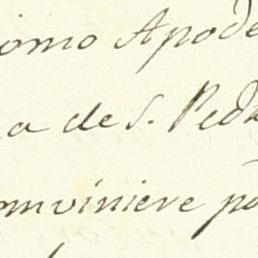 como Apode
a de S. Pedr
onviniere pa